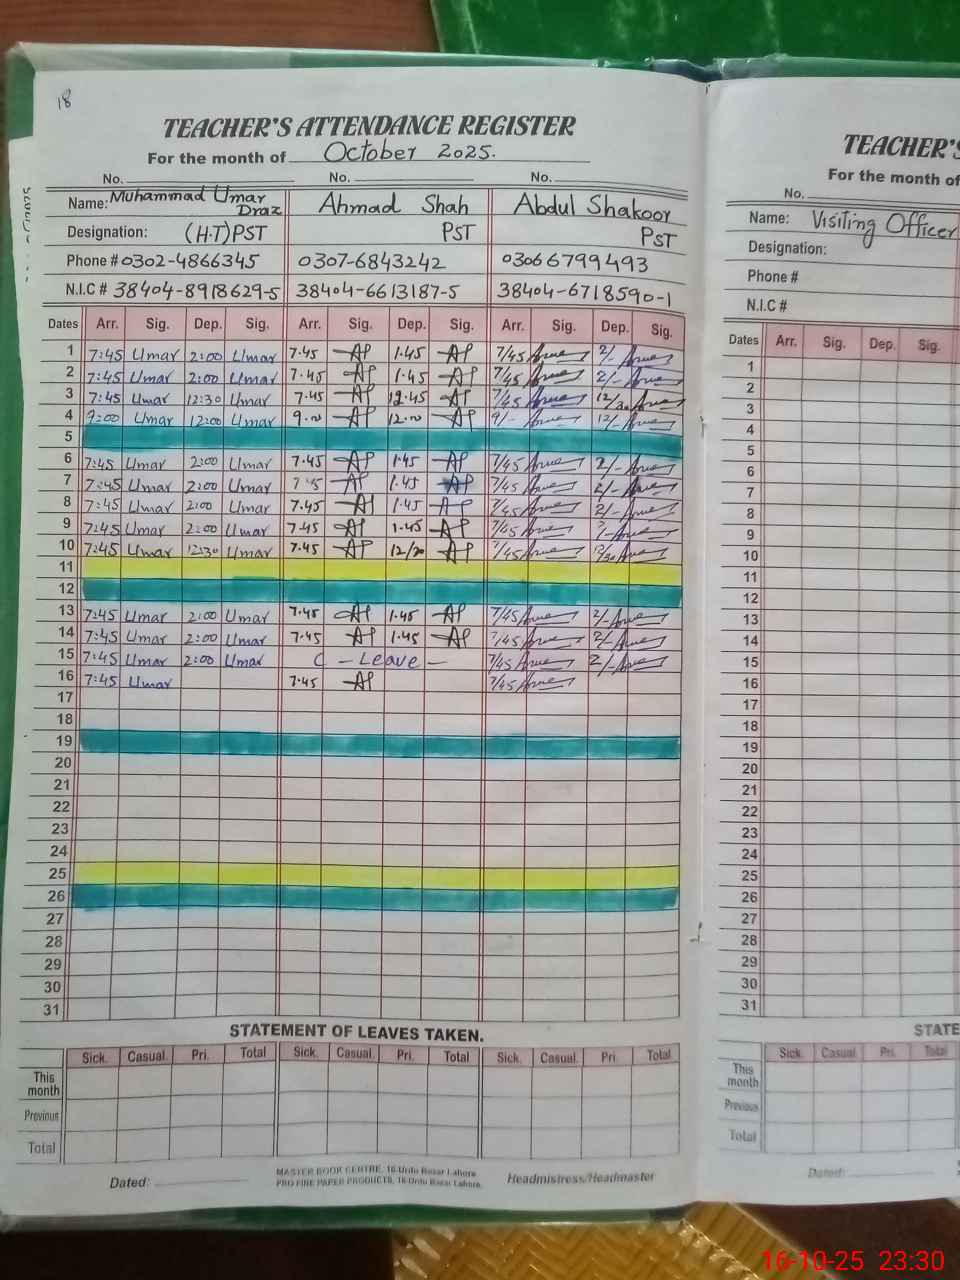 18
TEACHER'S ATTENDANCE REGISTER
For the month of October 2025.
No. No. No.
Name: Muhammad Umar Draz Ahmad Shah Abdul Shakoor
Designation: (H.T) PST PST PST
Phone # 0302-4866345 0307-6843242 03066799493
N.I.C # 38404-8918629-5 38404-6613187-5 38404-6718590-1
Dates Arr. Sig. Dep. Sig. Arr. Sig. Dep. Sig. Arr. Sig. Dep. Sig.
1 7:45 Umar 2:00 Umar 7.45 AP 1.45 AP 7/45 2/-
2 7:45 Umar 2:00 Umar 7.45 AP 1.45 AP 7/45 2/-
3 7:45 Umar 12:30 Umar 7.45 AP 12.45 AP 7/45 12/30
4 9:00 Umar 12:00 Umar 9.00 AP 12.00 AP 9/- 12/-
5
6 7:45 Umar 2:00 Umar 7.45 AP 1.45 AP 7/45 2/-
7 7:45 Umar 2:00 Umar AP 1.45 AP 7/45 2/-
8 7:45 Umar 2:00 Umar 7.45 AP 1.45 AP 7/45 2/-
9 7:45 Umar 2:00 Umar 7.45 AP 1.45 AP 7/45
10 7:45 Umar 12:30 Umar 7.45 AP 12/30 AP 7/45 12/30
11
12
13 7:45 Umar 2:00 Umar 7.45 AP 1.45 AP 7/45 2/-
14 7:45 Umar 2:00 Umar 7.45 AP 1.45 AP 7/45 2/-
15 7:45 Umar 2:00 Umar C - Leave - 7/45 2/-
16 7:45 Umar 7.45 AP 7/45
17
18
19
20
21
22
23
24
25
26
27
28
29
30
31
STATEMENT OF LEAVES TAKEN.
Sick. Casual. Pri. Total Sick. Casual. Pri. Total Sick. Casual. Pri. Total
This month
Previous
Total
Dated:
MASTER BOOK CENTRE, 16-Urdu Bazar Lahore.
PRO FINE PAPER PRODUCTS, 16-Urdu Bazar Lahore.
Headmistress/Headmaster
TEACHER'S
For the month of
No.
Name: Visiting Officer
Designation:
Phone #
N.I.C #
Dates Arr. Sig. Dep. Sig.
1
2
3
4
5
6
7
8
9
10
11
12
13
14
15
16
17
18
19
20
21
22
23
24
25
26
27
28
29
30
31
STATE
Sick. Casual. Pri. Total
This month
Previous
Total
Dated:
16-10-25 23:30